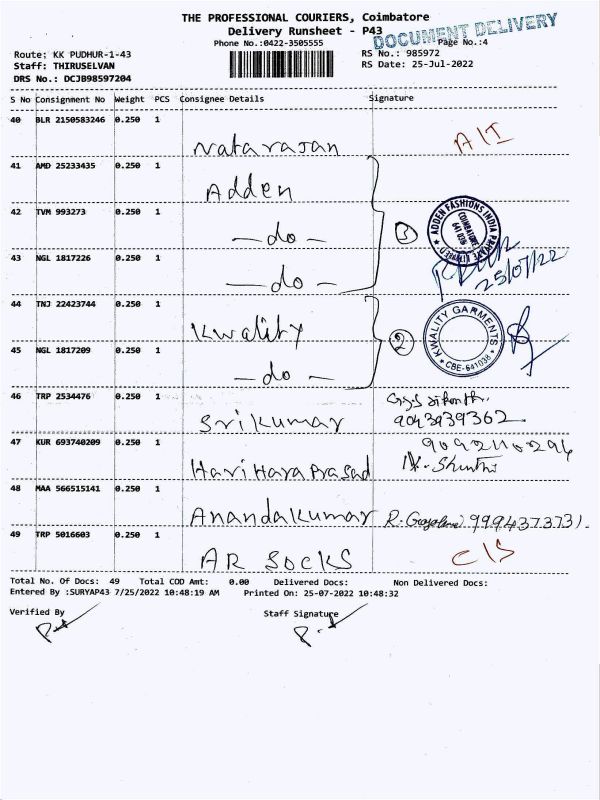 THE PROFESSIONAL COURIERS, Coimbatore
Delivery Runsheet - P43
DOCUMENT DELIVERY
Phone No.:0422-3505555
Page No.:4
Route: KK PUDHUR-1-43
RS No.: 985972
Staff: THIRUSELVAN
RS Date: 25-Jul-2022
DRS No.: DCJB98597204
S No Consignment No Weight PCS Consignee Details Signature
40 BLR 2150583246 0.250 1
Natarajan A/I
41 AMD 25233435 0.250 1
Adden
42 TVM 993273 0.250 1
-do- 3
ADDEN FASHIONS INDIA PRIVATE LIMITED
COIMBATORE
641 026
43 NGL 1817226 0.250 1
-do- 25/07/22
44 TNJ 22423744 0.250 1
Kwality 2
KWALITY GARMENTS
CBE-641038
45 NGL 1817209 0.250 1
-do-
46 TRP 2534476 0.250 1
Srikumar 9043939362
47 KUR 693740209 0.250 1
9092110294
Hari Hara Prasad
48 MAA 566515141 0.250 1
Anandakumar R. 9994373731
49 TRP 5016603 0.250 1
AR SOCKS C/S
Total No. Of Docs: 49 Total COD Amt: 0.00 Delivered Docs: Non Delivered Docs:
Entered By :SURYAP43 7/25/2022 10:48:19 AM Printed On: 25-07-2022 10:48:32
Verified By Staff Signature